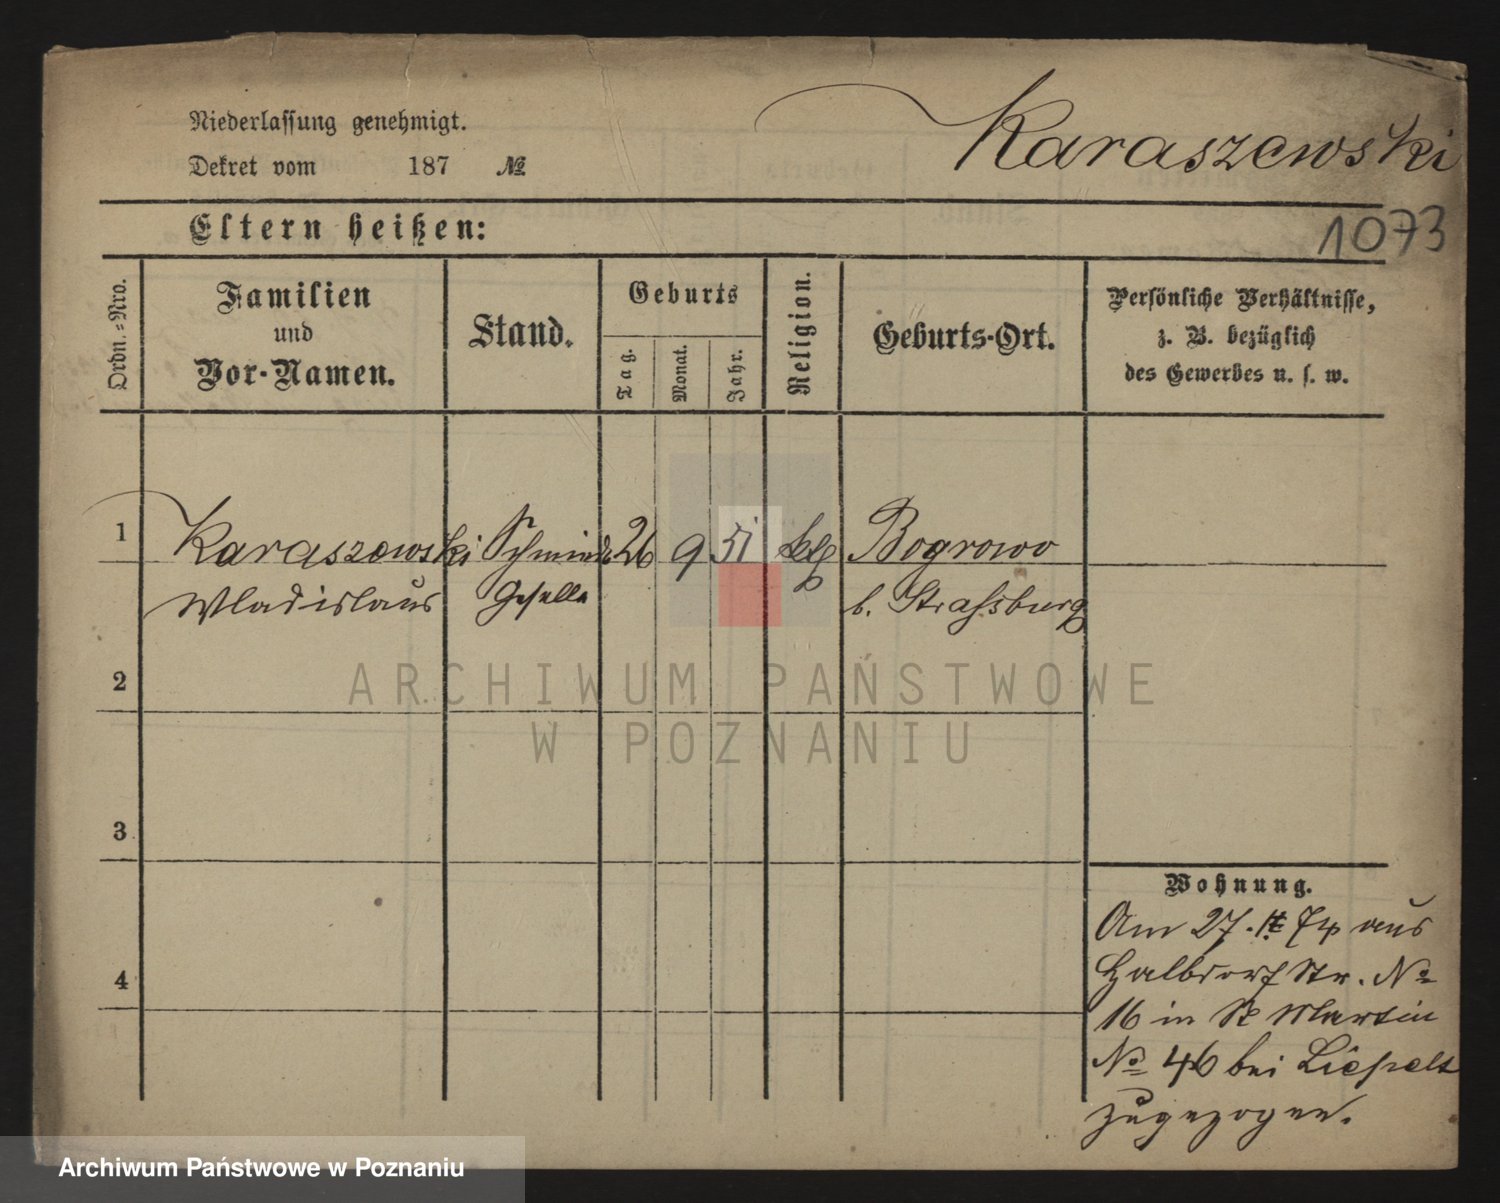 Niederlassung genehmigt.
Karaszewski
Dekret vom 187 №
Eltern heißen:
1073
Ordn.-Nro.
Familien
und
Vor-Namen.
Stand.
Geburts
Tag.
Monat.
Jahr.
Religion.
Geburts-Ort.
Persönliche Verhältnisse,
z. B. bezüglich
des Gewerbes u. s. w.
1
Karaszewski Schmiede 26 9 51 kth Bogrowo
Wladislaus Geselle b. Strassburg
2
3
4
Wohnung.
Am 27. 74 aus
Halbdorf Str. No
16 in St Martin
No 46 bei
zugezogen.
ARCHIWUM PAŃSTWOWE
W POZNANIU
Archiwum Państwowe w Poznaniu